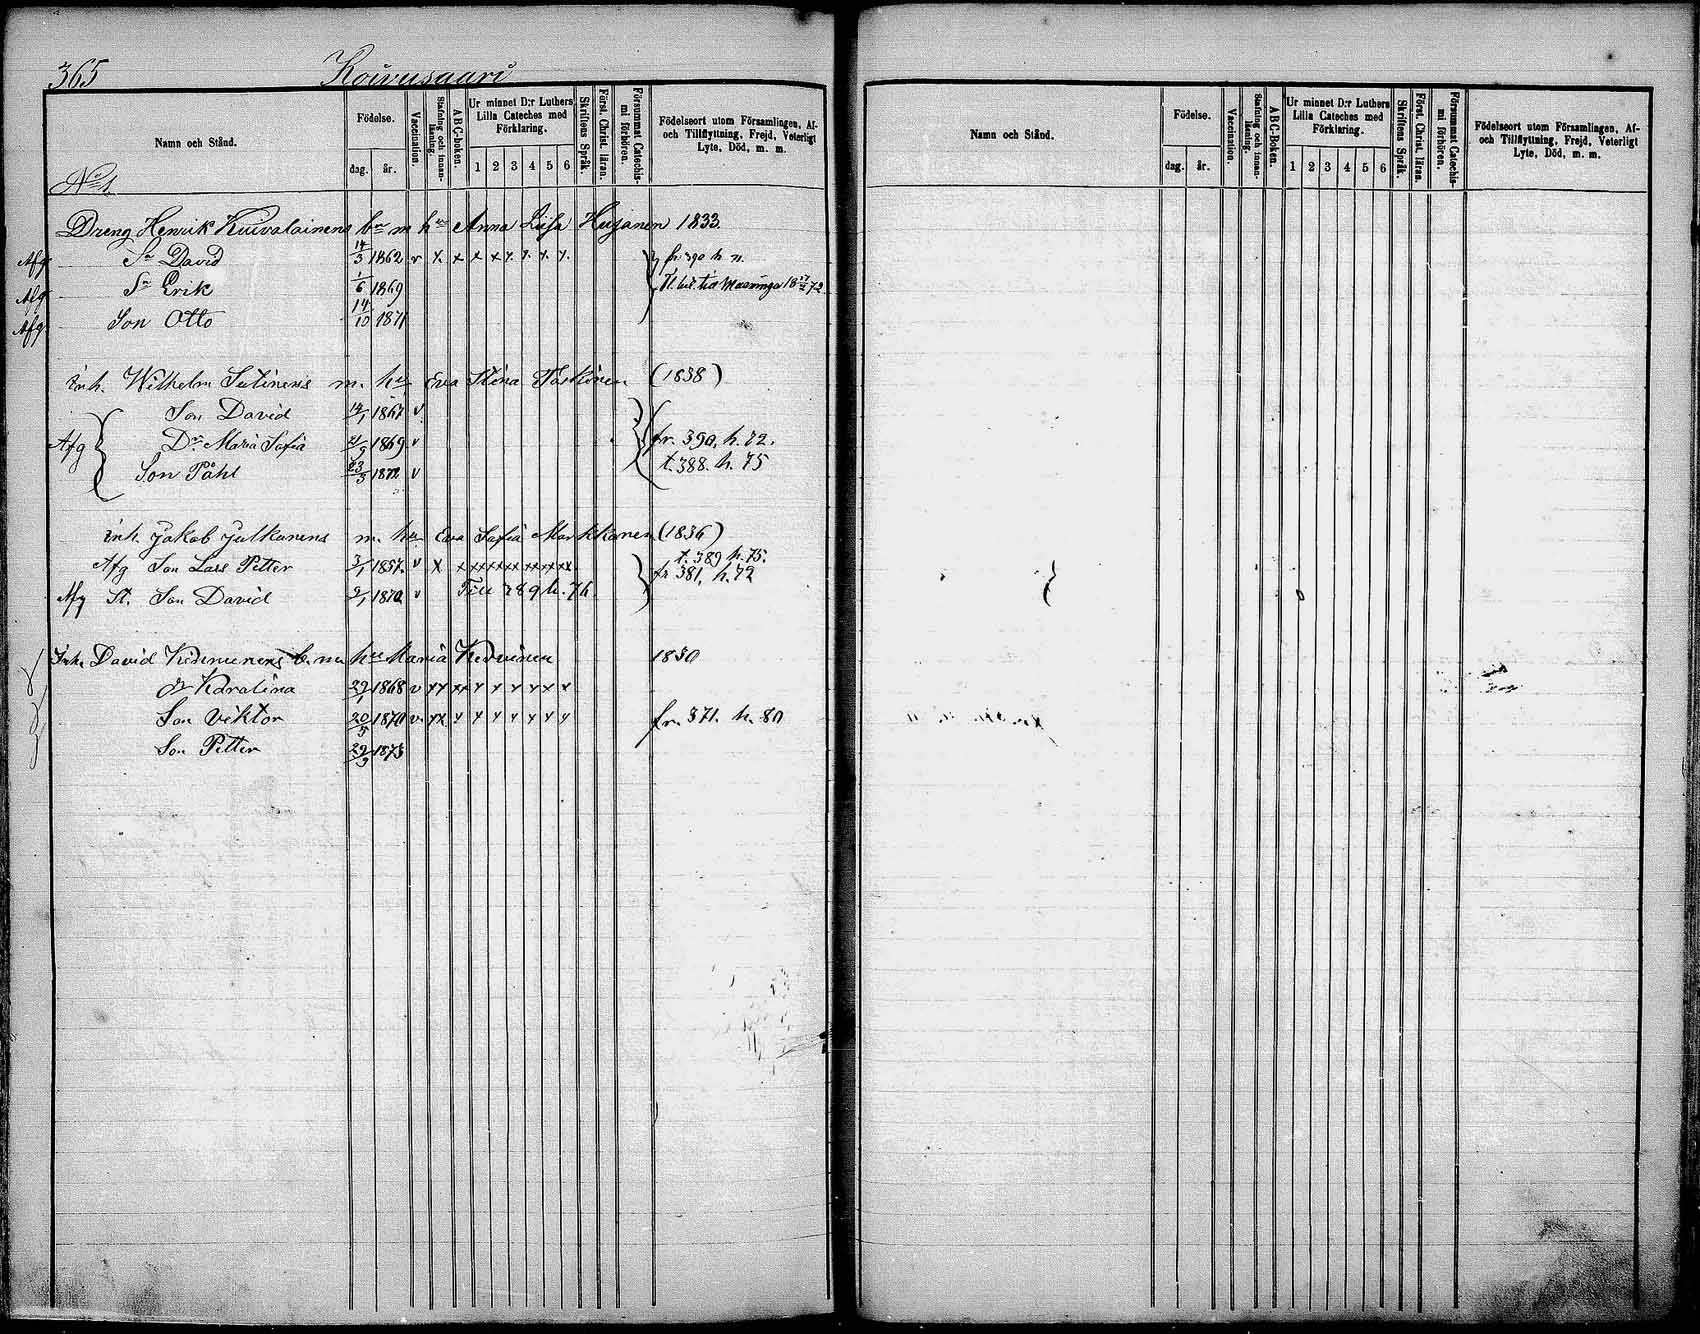 365 Koivusaari
Namn och Stånd.
Födelse.
dag. år.
Vaccination.
Stafning och innan-läsning.
ABC-boken.
Ur minnet D:r Luthers Lilla Cateches med Förklaring.
1 2 3 4 5 6
Skriftens Språk.
Först. Christ. läran.
Försummat Catechis-mi förhören.
Födelseort utom Församlingen, Af- och Tillflyttning, Frejd, Veterligt Lyte, Död, m. m.
No 1
Dreng Henrik Kuivalainens bn m hu Anna Lusa Husanen 1833.
Afg Sn David 14/3 1862 v x x x x x x x x fr. 390 h
Afg Sn Erik 1/6 1869 72
Afg Son Otto 14/10 1871
Inh. Wilhelm Sutinens m. hu Eva Stina Täskinen (1838)
Son David 14/1 1867 v
Afg Dr Maria Sofia 21/9 1869 v fr. 390. h. 72.
Son Påhl 23/3 1872 v t. 388. h. 75
Inh. Jakob Julkunens m. hu Eva Sofia Markkanen (1836)
t. 389 h. 75.
Afg Son Lars Petter 3/1 1857. v x x x x x x x x x x x fr 381, h. 72
Afg St. Son David 2/1 1872 v Till 389 h. 76.
Inh. David b. m hu Maria 1830
dr Karolina 29/1 1868 v x x x x x x x x x x
Son Viktor 20/5 1870 v. x x x x x x x x x fr. 371. h. 80
Son Petter 29/3 1873
Namn och Stånd.
Födelse.
dag. år.
Vaccination.
Stafning och innan-läsning.
ABC-Boken.
Ur minnet D:r Luthers Lilla Cateches med Förklaring.
1 2 3 4 5 6
Skriftens Språk.
Först. Christ. läran.
Försummat Catechis-mi förhören.
Födelseort utom Församlingen, Af- och Tillflyttning, Frejd, Veterligt Lyte, Död, m. m.